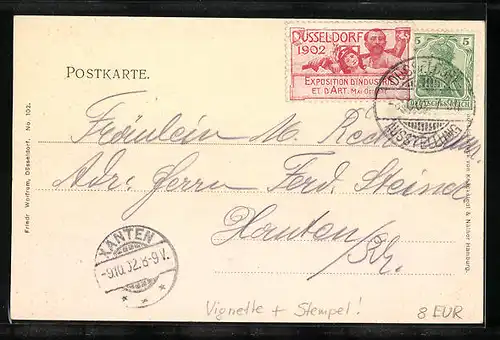 DÜSSELDORF
1902
EXPOSITION D'INDUSTRIE
ET D'ART. MAI
5 5
DEUTSCHES REICH
DÜSSELDORF
AUSSTELLUNG
POSTKARTE.
Fräulein M.
Adr. Herrn Ferd.
Xanten/Rh.
XANTEN
-9.10.02.8-9V.
* * *
Friedr. Wolfrum, Düsseldorf. No. 102.
von Knackstedt & Näther Hamburg.
Vignette + Stempel!
8 EUR